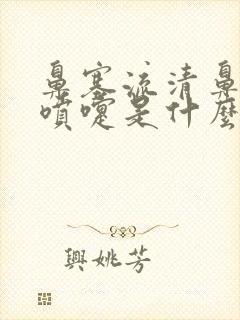 鼻塞流清鼻
噴嚏是什麼
興姚芳